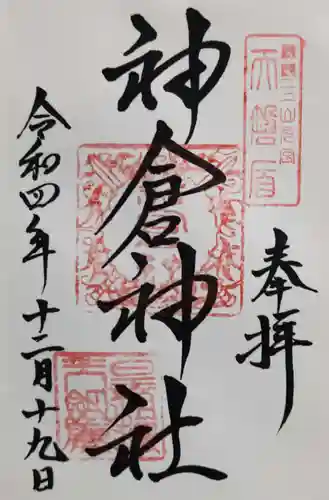 奉拝
神倉神社
令和四年十二月十九日